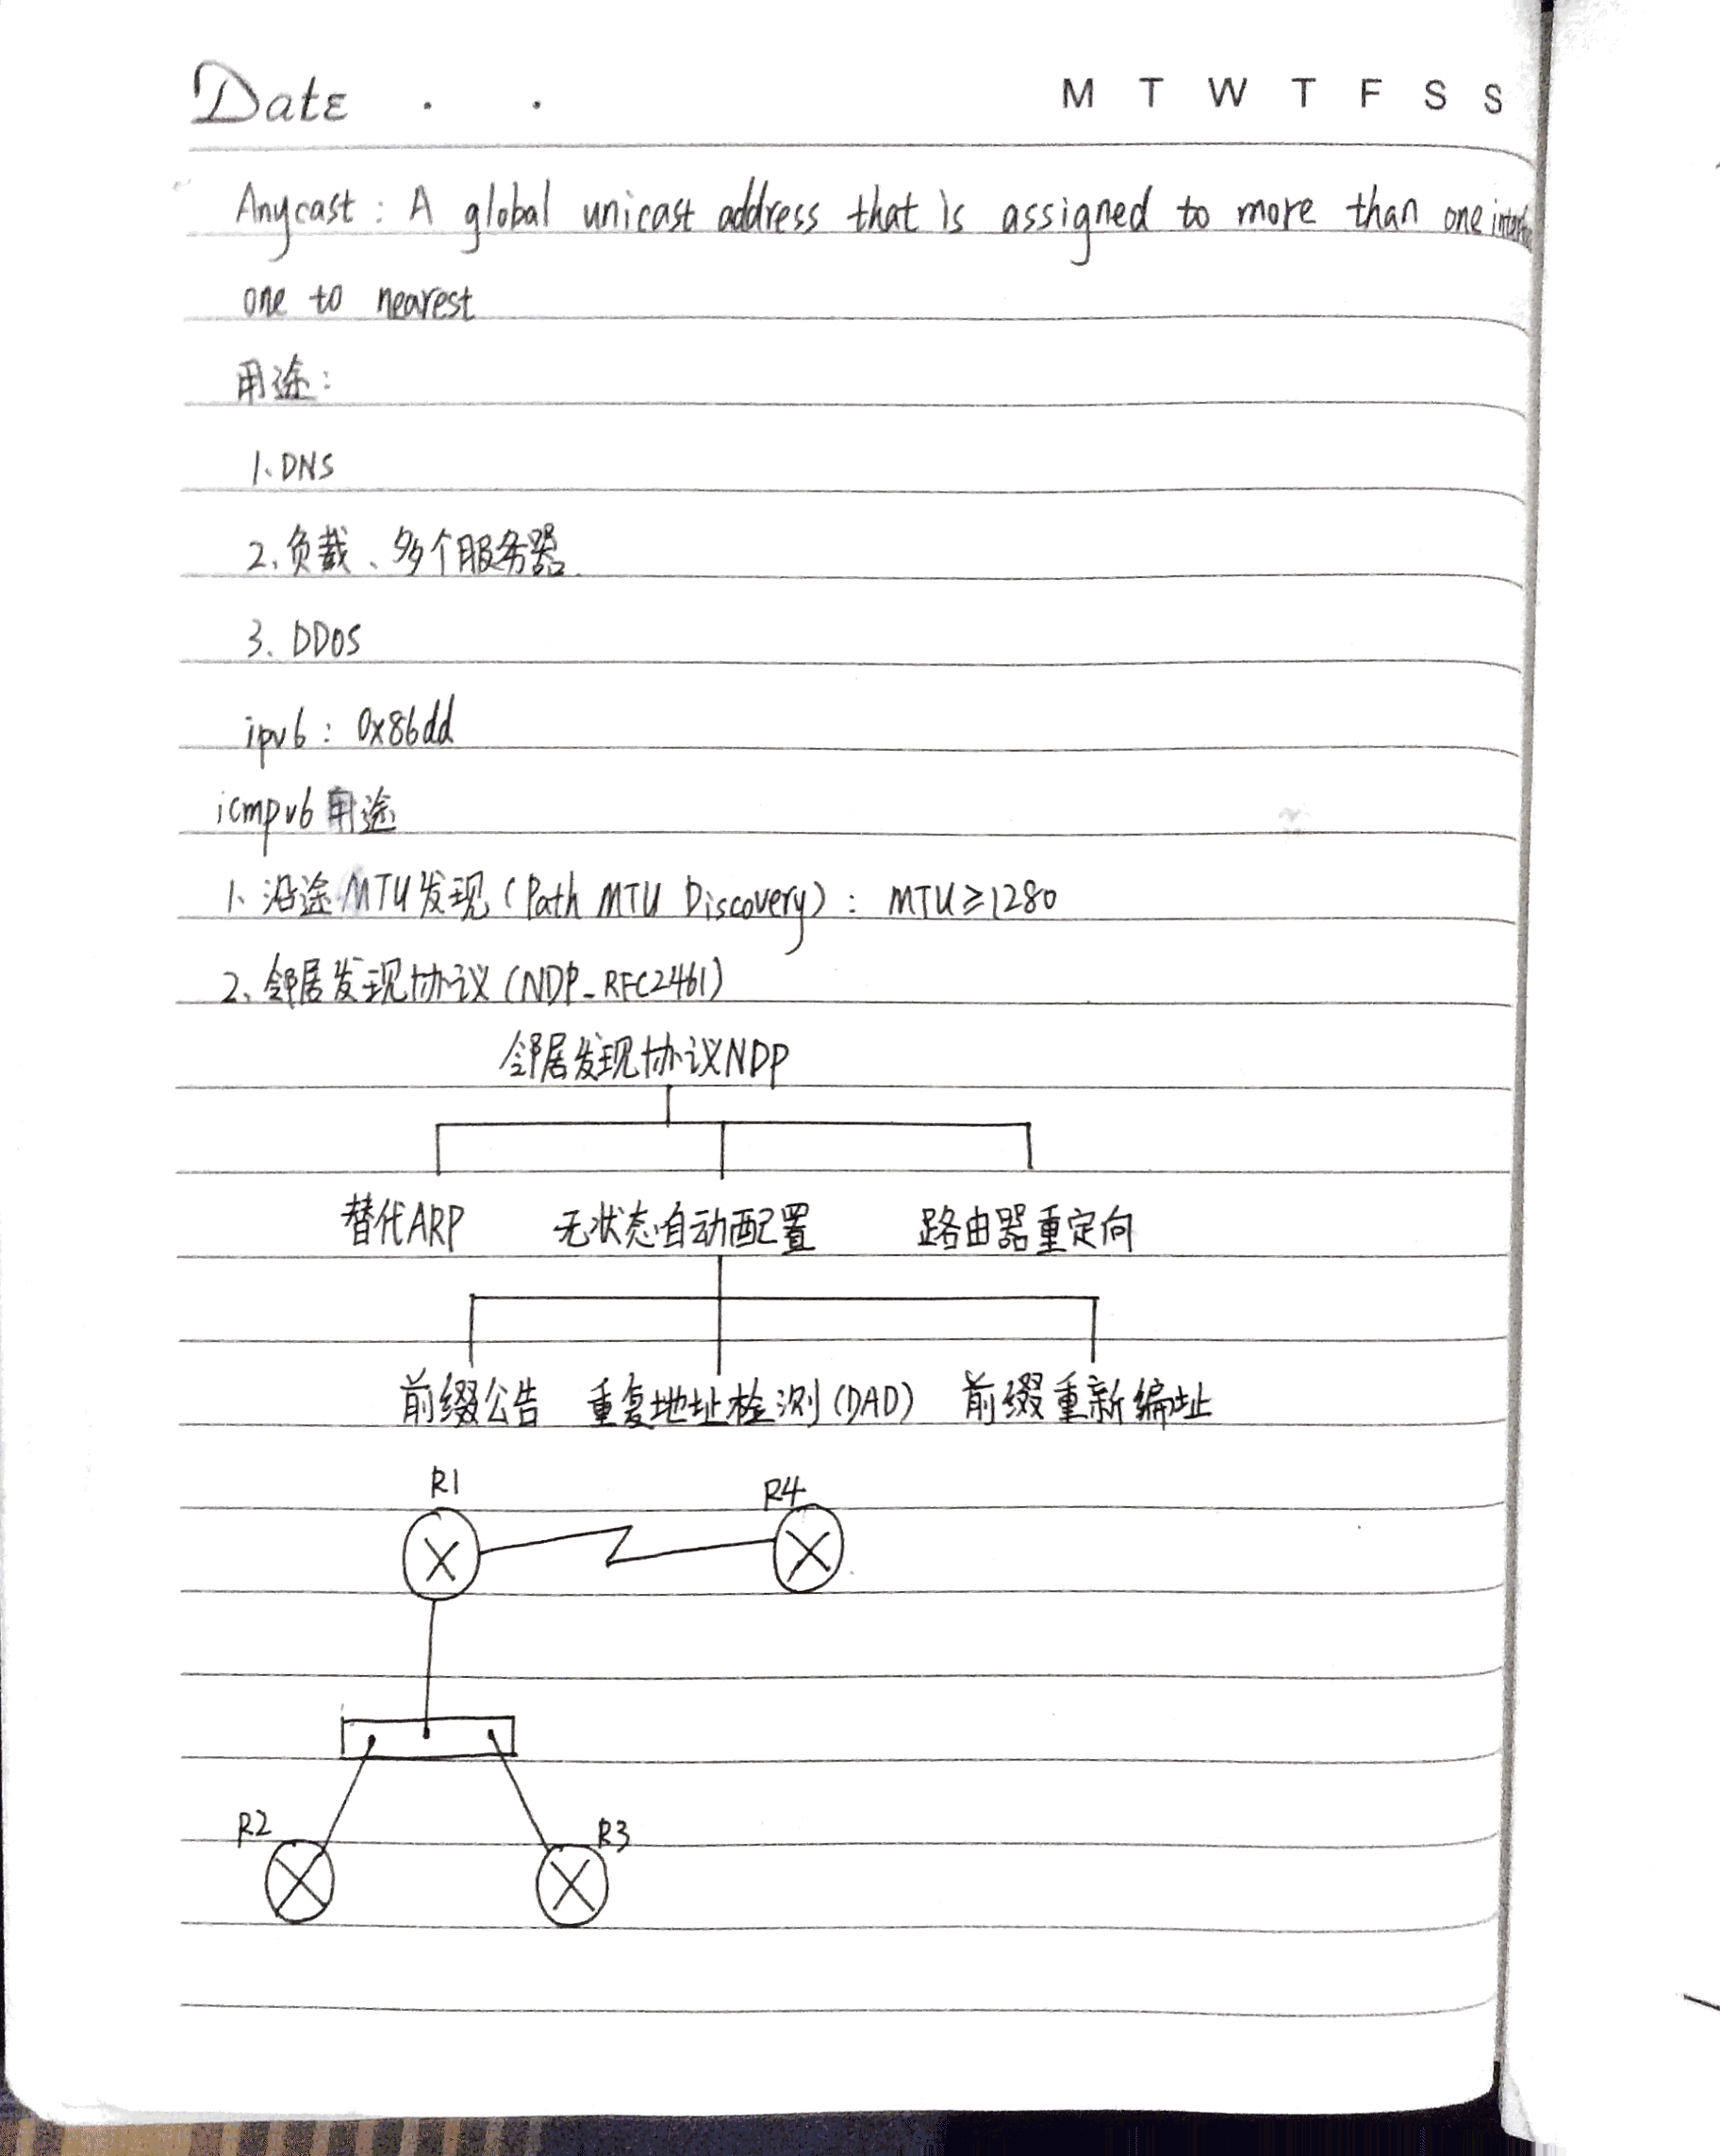 Date . .
M T W T F S S
Anycast: A global unicast address that is assigned to more than one
one to nearest
用途:
1、DNS
2、负载、多个服务器
3. DDOS
ipv6: 0x86dd
icmpv6用途
1、沿途MTU发现(Path MTU Discovery): MTU≥1280
2、邻居发现协议(NDP_RFC2461)
邻居发现协议NDP
替代ARP 无状态自动配置 路由器重定向
前缀公告 重复地址检测(DAD) 前缀重新编址
R1
R4
R2
R3